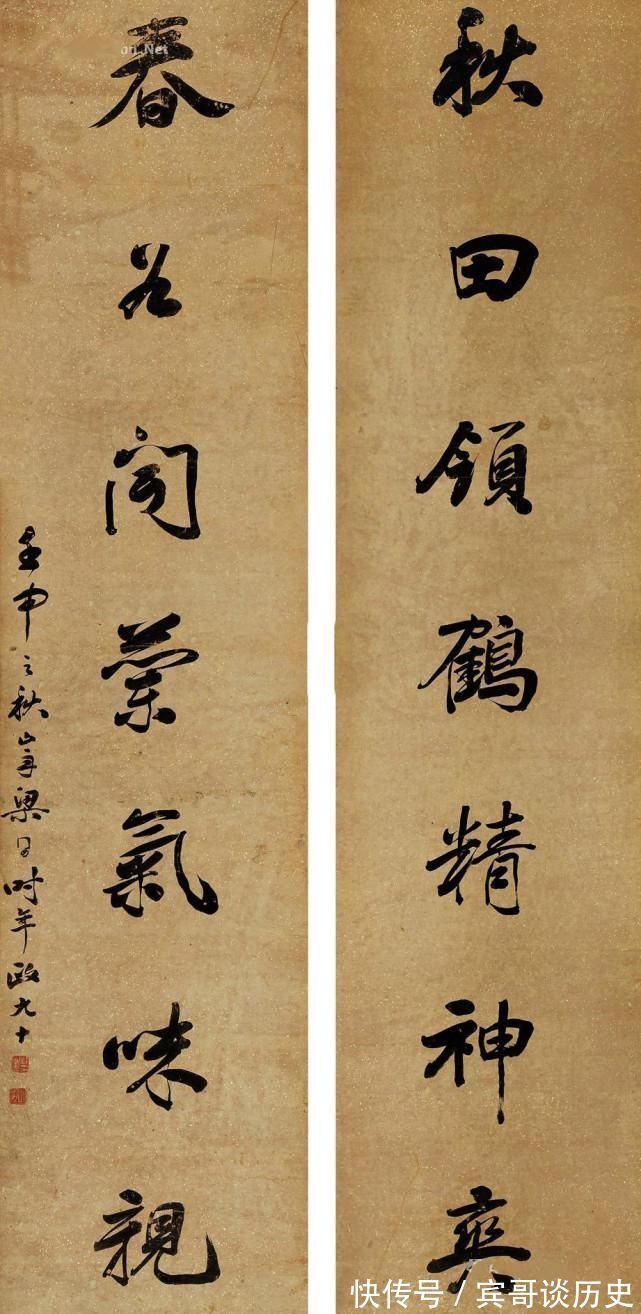 秋田領鶴精神爽
春谷聞蘭氣味親
壬申之秋山舟梁同時年政九十
快传号 / 宾哥谈历史